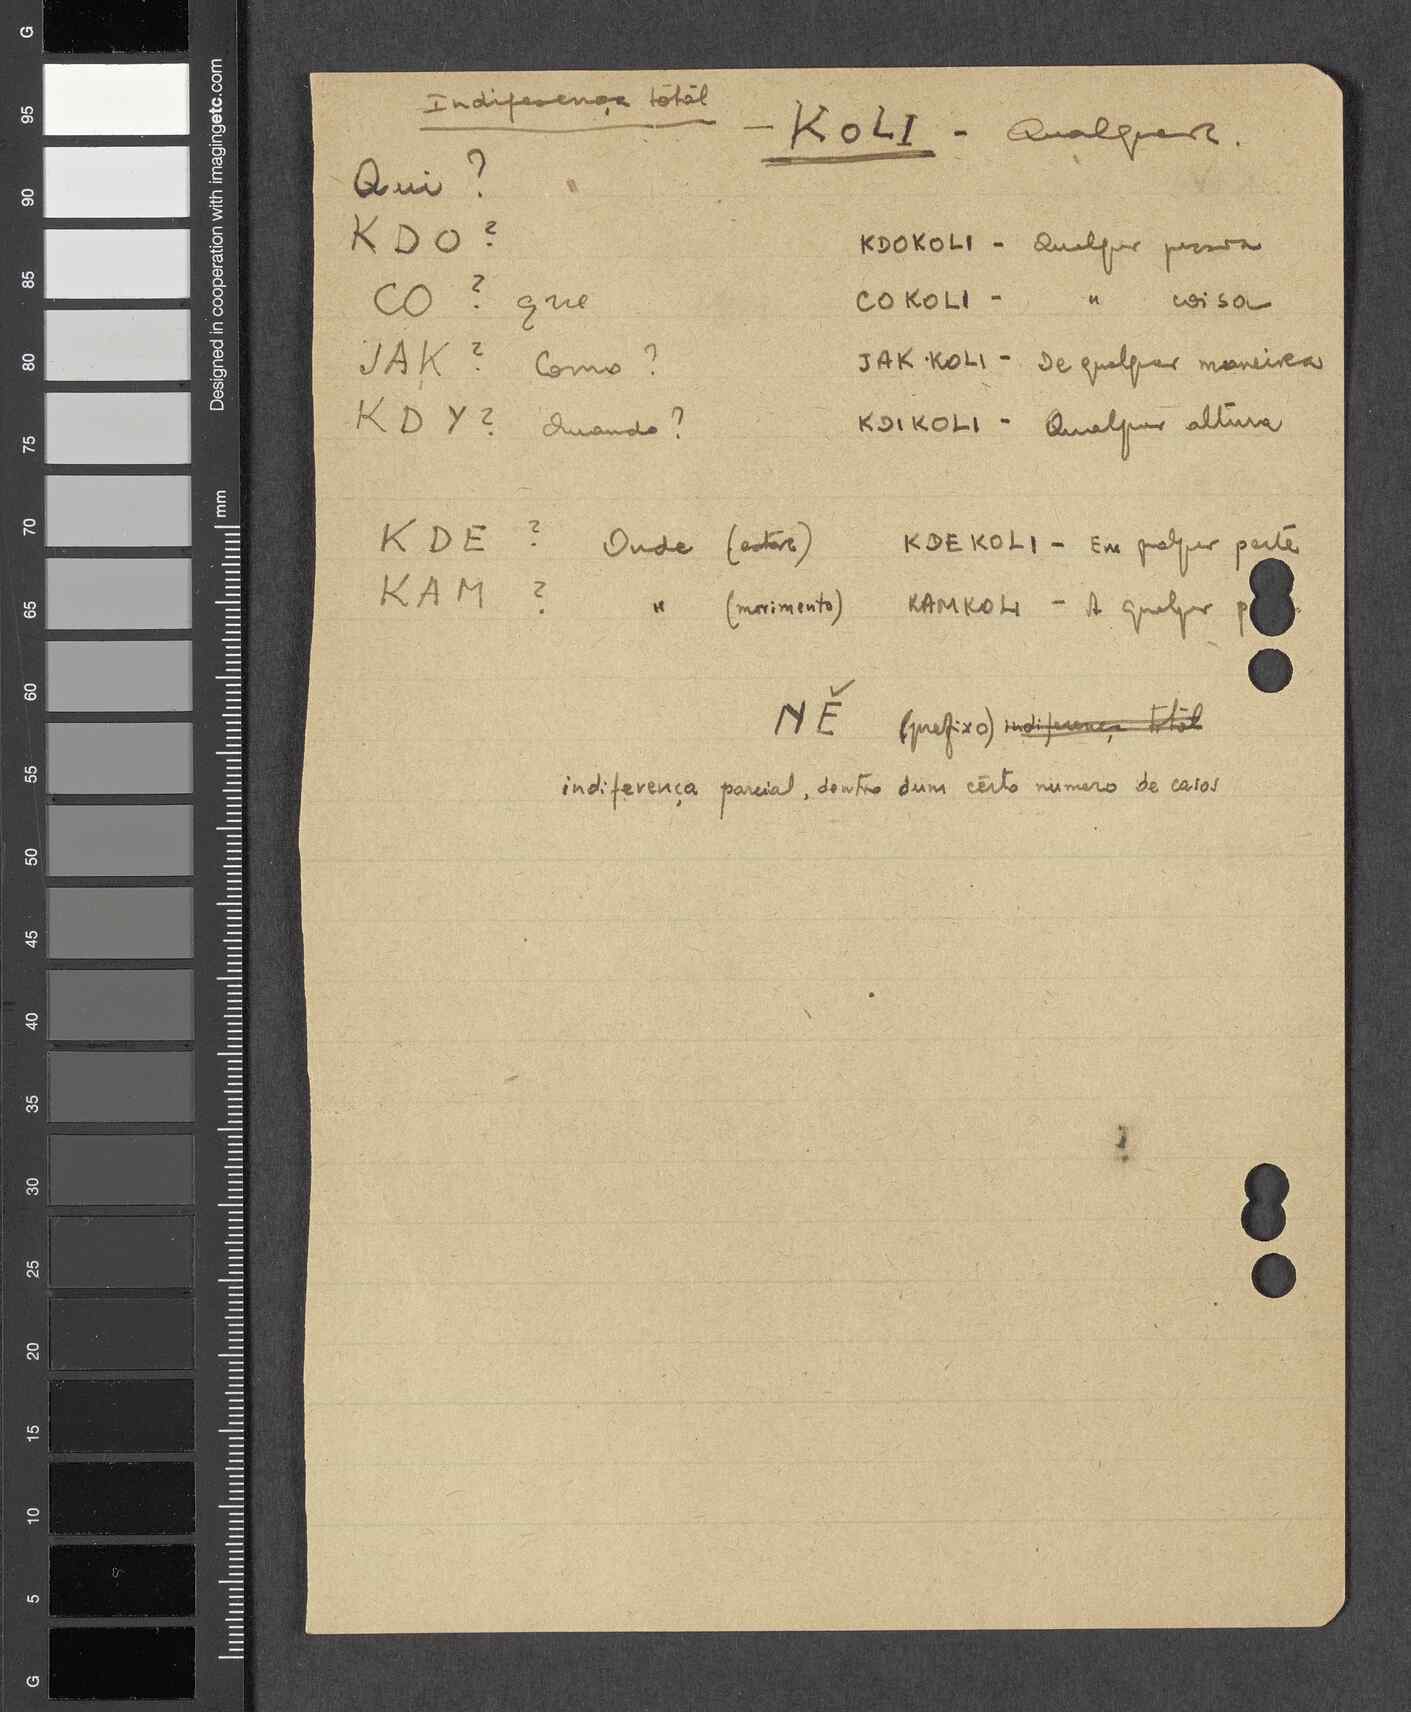 Indiferença totál
- KOLI - Qualquer.
Qui ?
KDO ? KDOKOLI - Qualquer pessoa
CO ? que COKOLI - " coisa
JAK ? Como ? JAK·KOLI - De qualquer maneira
KDY ? Quando ? KDIKOLI - Qualquer altura
KDE ? Onde (estár) KDEKOLI - Em qualquer parte
KAM ? " (movimento) KAMKOLI - A qualquer
NĚ (prefixo) indiferença totál
indiferença parcial, dentro dum cérto numero de casos
G
95
90
85
80
75
70
65
60
55
50
45
40
35
30
25
20
15
10
5
G
Designed in cooperation with imagingetc.com
mm